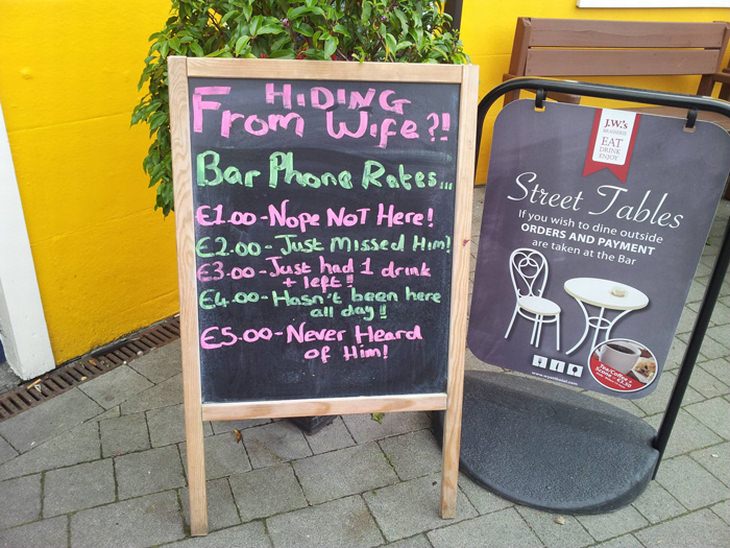 HIDING
From Wife?!
Bar Phone Rates...
€1.00-Nope NoT Here!
€2.00-Just Missed Him!
€3.00-Just had 1 drink
+ left!
€4.00-Hasn't been here
all day!!
€5.00-Never Heard
of Him!
J.W.'s
BRASSERIE
EAT
DRINK
ENJOY
Street Tables
If you wish to dine outside
ORDERS AND PAYMENT
are taken at the Bar
Tea/Coffee &
Scone